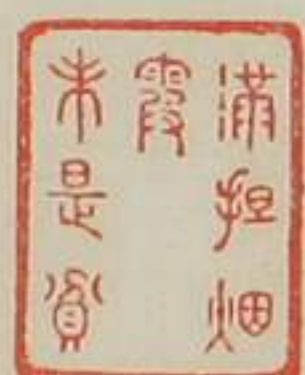 滿担烟
霞
未是貧